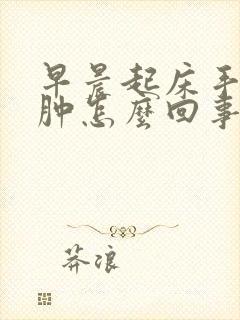 早晨起床手
肿怎麽回事
莽浪